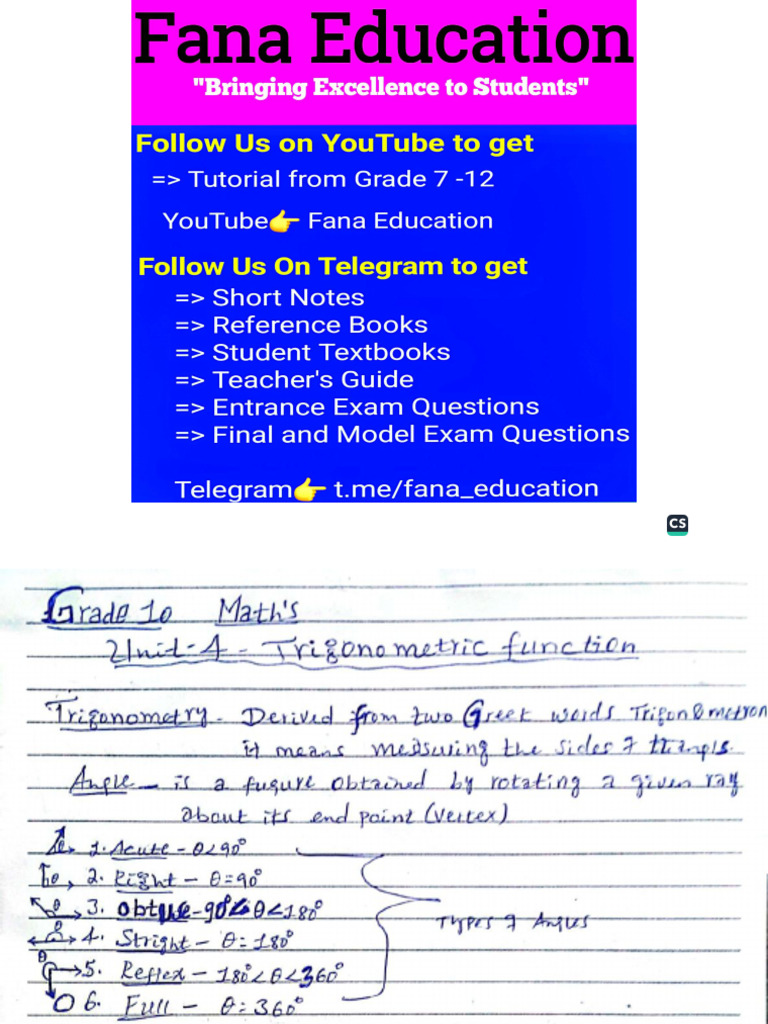 Fana Education
"Bringing Excellence to Students"
Follow Us on YouTube to get
=> Tutorial from Grade 7 -12
YouTube👉 Fana Education
Follow Us On Telegram to get
=> Short Notes
=> Reference Books
=> Student Textbooks
=> Teacher's Guide
=> Entrance Exam Questions
=> Final and Model Exam Questions
Telegram👉 t.me/fana_education
CS
Grade 10 Math's
Unit-4 - Trigonometric function
Trigonometry - Derived from two Greek words Trigon & metron
it means measuring the sides of
Angle - is a fugure obtained by rotating a given ray
about its end point (vertex)
1. Acute - θ<90°
θ, 2. Right - θ=90°
3. obtuse - 90°<θ<180°
4. Stright - θ=180°
θ
5. Reflex - 180°<θ<360°
6. Full - θ=360°
Types of Angles